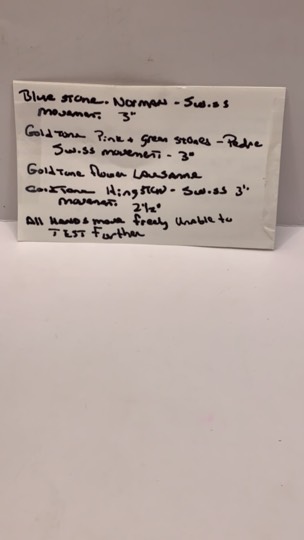 Blue stone - Norman - Swiss
movement 3"
Goldtone Pink + Green stones - Pedre
Swiss movement - 3"
Goldtone flower Lausanne
Goldtone Kingston - Swiss 3"
movement 2½"
All Hands move freely Unable to
TEST further